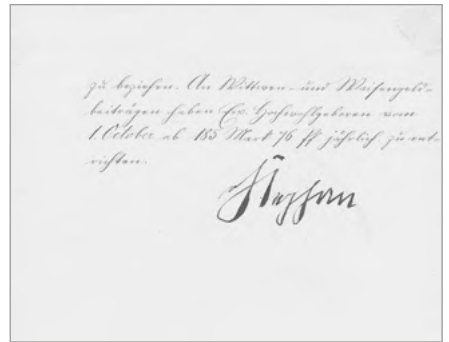 zu beziehen. An Wittwen- und Waisengeld-
beiträgen haben Ew. Hochwohlgeboren vom
1. October ab 185 Mark 76 Pf jährlich zu ent-
richten.
Stephan